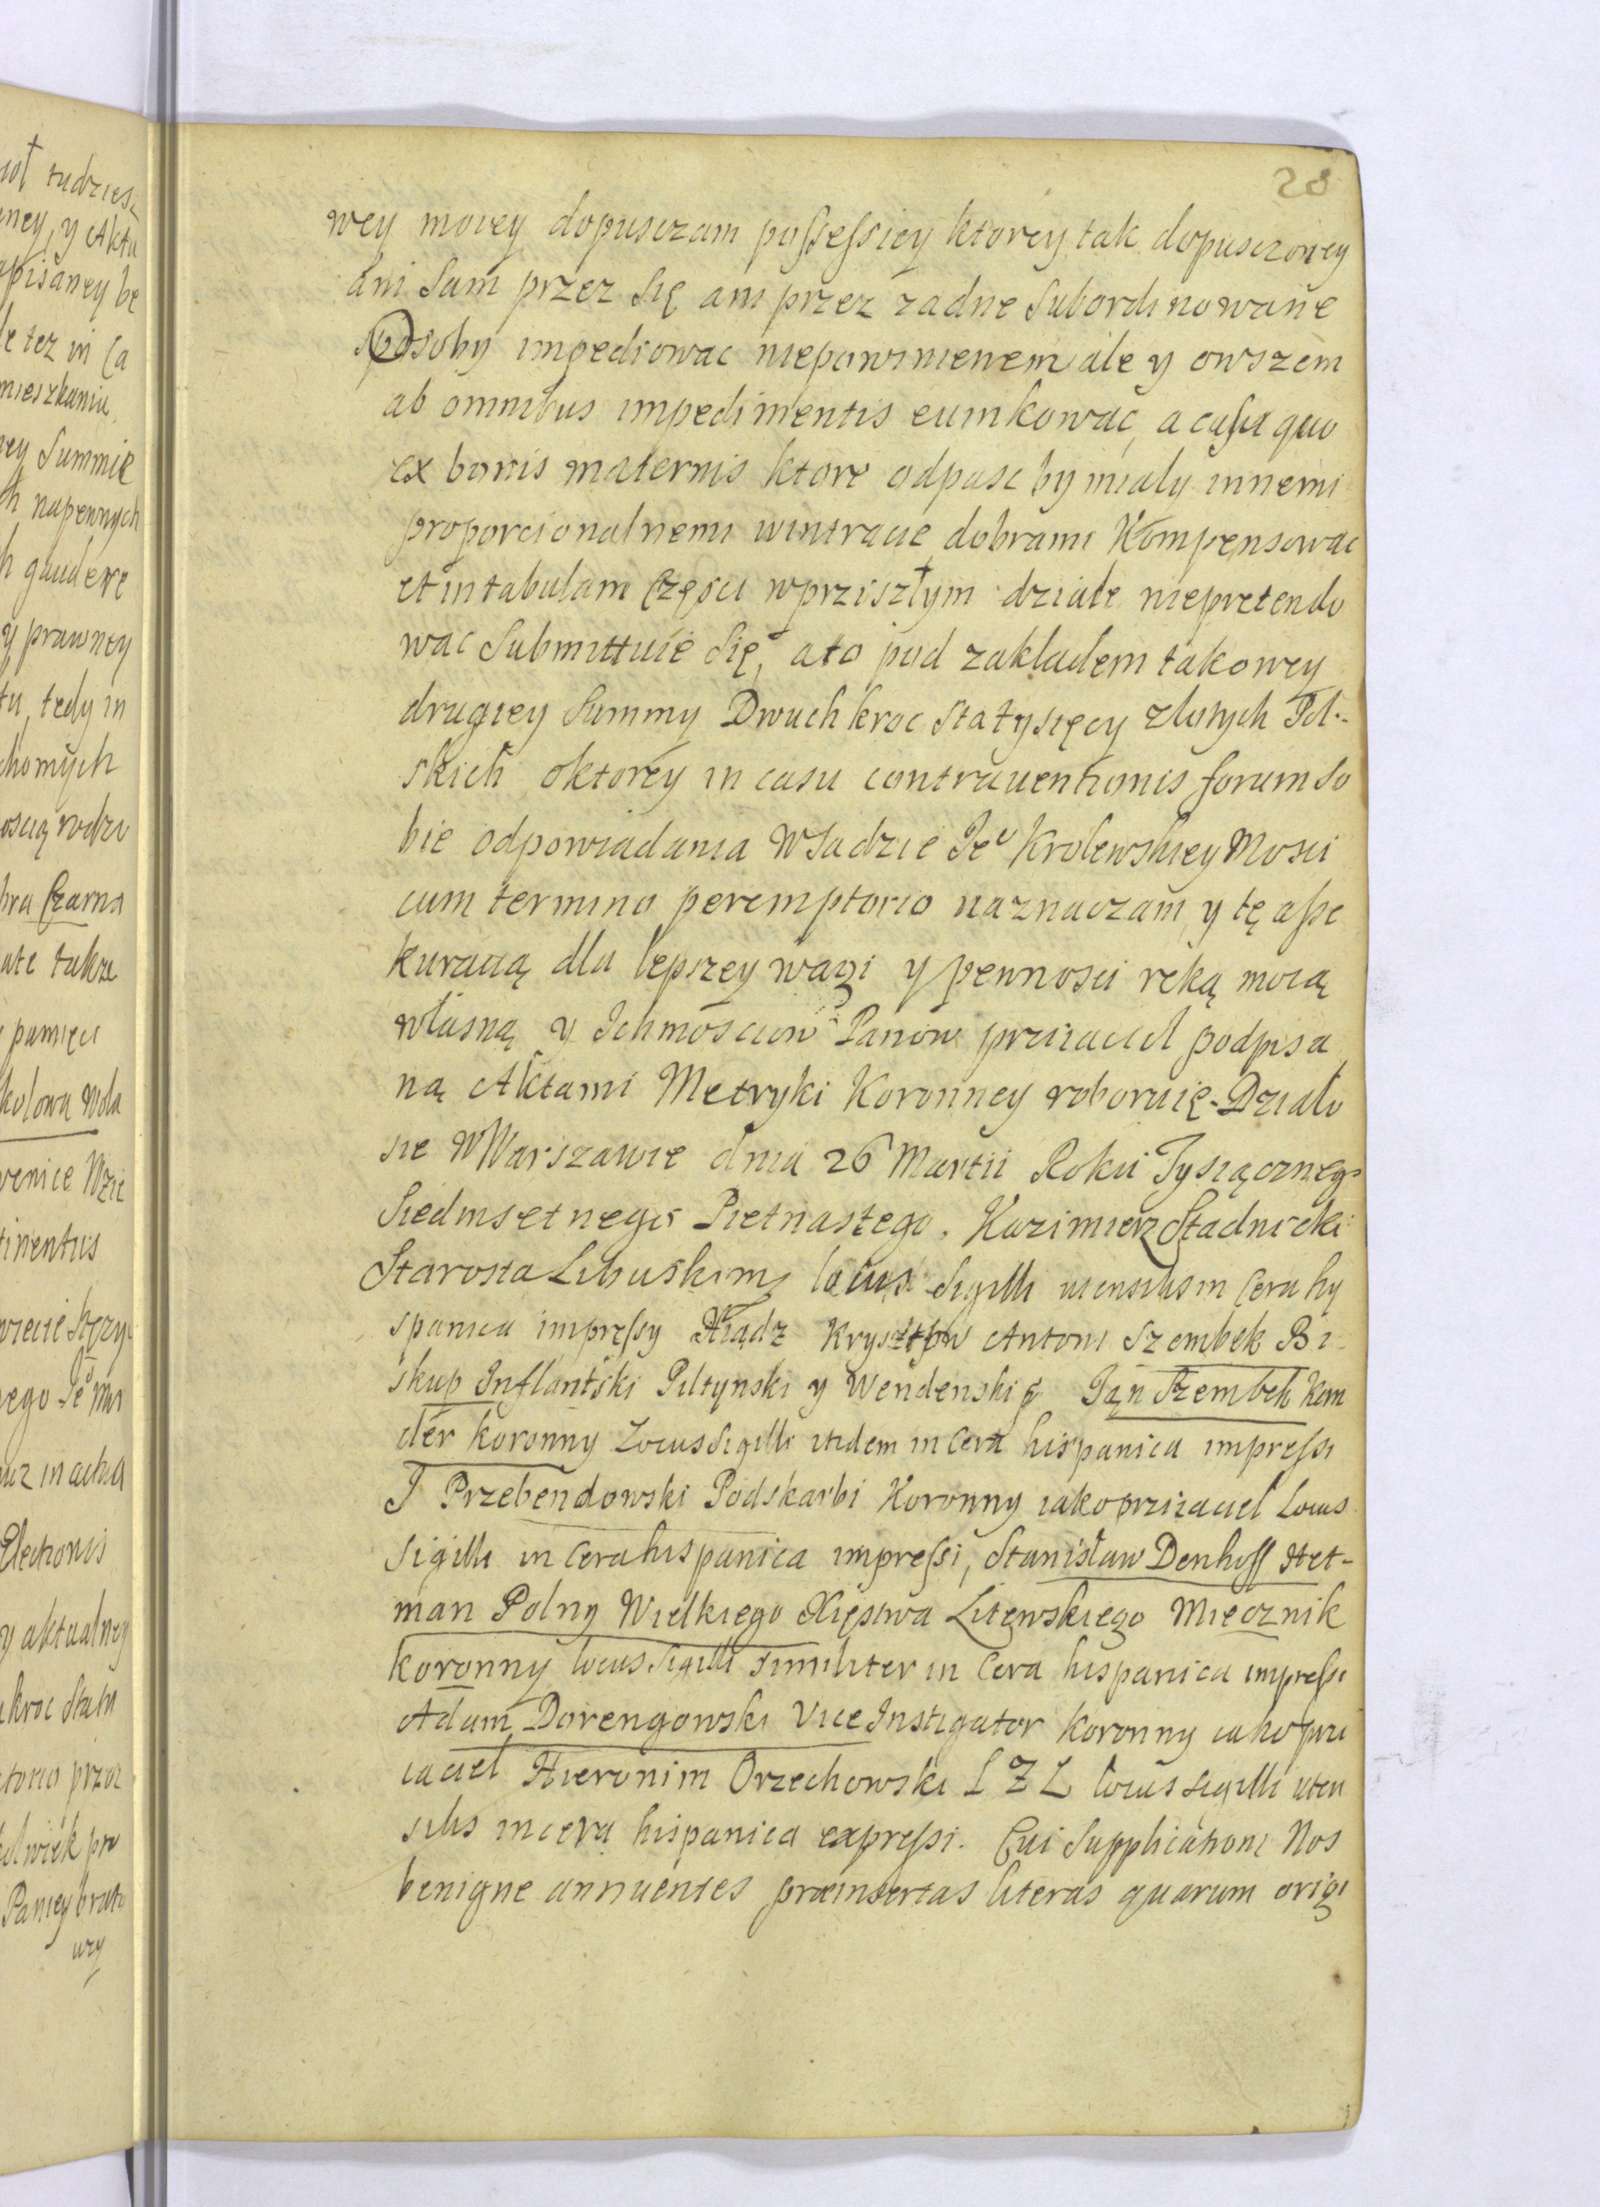 28
wey moiey dopusczam possessiey ktorey tak dopusczoney
ani Sam przez Się ani przez zadne Subordinowane
osoby impediowac niepowinienem ale y owszem
ab omnibus impedimentis euinkowac, a casu quo
ex bonis maternis ktore odpasc by mialy innemi
proporcionalnemi wintracie dobrami Kompensowac
et in tabulam Częsci wprziszłym dziale niepretendo
wac Submittuię Się, ato pod zakladem takowey
drugiey Summy Dwuch kroc Sta tysięcy zlotych Pol-
skich oktorey in casu contrauentionis forum So
bie odpowiadania wSadzie Je° Krolewskiey Mosci
cum termino peremptorio naznaczam, y tę asse
kuracią dla lepszey wagi y pewnosci ręką moią
własną y Ichmosciow Panow przyiaciel podpisa
ną Aktami Metryki Koronney roboruię. Działo
sie w Warszawie dnia 26 Martii Roku Tysiącznego
Siedmsetnego Pietnastego. Kazimierz Stadnicki
Starosta Libuski locus Sigilli utensilis in Cera hy
spanica impressy Xiądz Krysztow Antoni Szembek Bi-
skup Inflantski Piltynski y Wendenski Jan Szembek Kan
clerz Koronny Locus Sigilli itidem in Cera hispanica impressi
J Przebendowski Podskarbi Koronny iako przyiaciel Locus
Sigilli in Cera hispanica impressi, Stanisław Denhoff Het-
man Polny Wielkiego Xięstwa Litewskiego Miecznik
koronny locus Sigilli similiter in Cera hispanica impressi
Adam Dorengowski Vice Instigator Koronny iako przy
iaciel Hieronim Orzechowski L Z L locus sigilli uten
silis in cera hispanica expressi. Cui Supplicationi Nos
benigne annuentes præinsertas literas quarum origi